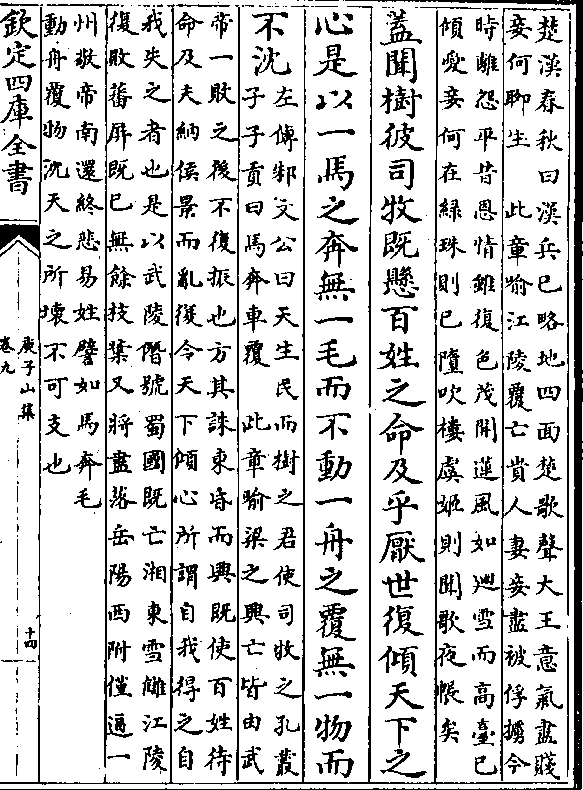 楚漢春秋曰漢兵已略地四面楚歌聲大王意氣盡賤
妾何聊生　此章喻江陵覆亡貴人妻妾盡被俘擄今
時離怨平昔恩情雖復色茂開蓮風如𢌞雪而高臺已
傾愛妾何在綠珠則已墮吹樓虞姬則聞歌夜帳矣
蓋聞樹彼司牧既懸百姓之命及乎厭世復傾天下之
心是以一馬之奔無一毛而不動一舟之覆無一物而
不沈
左傳邾文公曰天生民而樹之君使司牧之孔叢
子子貢曰馬奔車覆　此章喻梁之興亡皆由武
帝一敗之後不復振也方其誅東昏而興既使百姓待
命及夫納侯景而亂復令天下傾心所謂自我得之自
我失之者也是以武陵僭號蜀國既亡湘東雪讎江陵
復敗蕃屏既已無餘技葉又將盡落岳陽西附僅逼一
州敬帝南還終悲易姓譬如馬奔毛
動舟覆物沈天之所壞不可支也
欽定四庫全書
庾子山集
卷九
十四